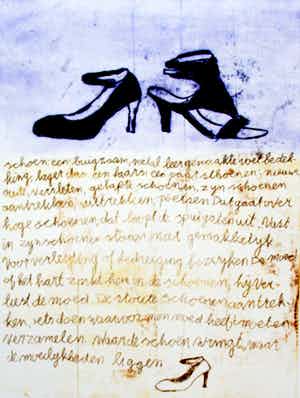 schoen: een buigzaam, net of leer gemaakte voet bedek-
king, lager dan een laars een paar schoenen; nieuwe
oude, versleten, gelapte schoenen, zijn schoenen
aantrekken, uittrekken, poetsen Dat gaat over
hoge schoenen, dat loopt de spuigaten uit. Vast
in zijn schoenen staan niet gemakkelijk
voor verleiding of bedreiging bezwijken De moed
of het hart zinkt hem in de schoenen, hij ver-
liest de moed. De stoute schoenen aantrek-
ken, iets doen waarvoor men moed heeft moeten
verzamelen. Waar de schoen wringt, waar
de moeilijkheden liggen